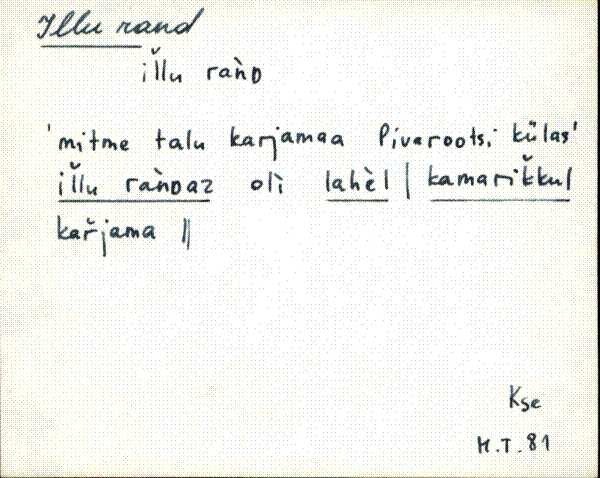 Illu rand
iľlu ràǹᴅ
'mitme talu karjamaa Pivarootsi külas'
iľlu ràǹᴅaz olì lahèl | kamarik̆kul
kař̀jama ||
Kse
M.T. 81